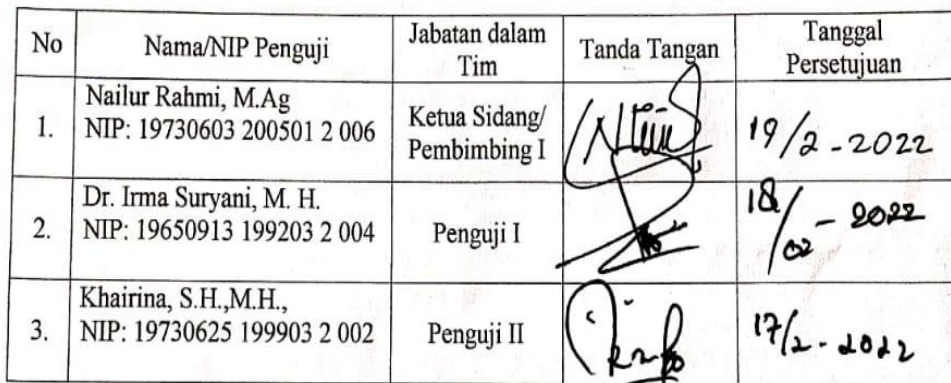 No Nama/NIP Penguji Jabatan dalam Tim Tanda Tangan Tanggal Persetujuan
1. Nailur Rahmi, M.Ag
NIP: 19730603 200501 2 006 Ketua Sidang/ Pembimbing I 19/2 - 2022
2. Dr. Irma Suryani, M. H.
NIP: 19650913 199203 2 004 Penguji I 18/02 - 2022
3. Khairina, S.H.,M.H.,
NIP: 19730625 199903 2 002 Penguji II 17/2 - 2022